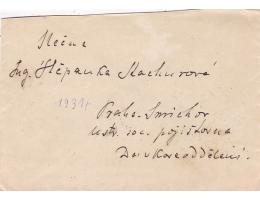 Slečna
Ing. Štěpanka Machurová
1934
Praha-Smíchov
Ústř. soc. pojišťovna
oddělení